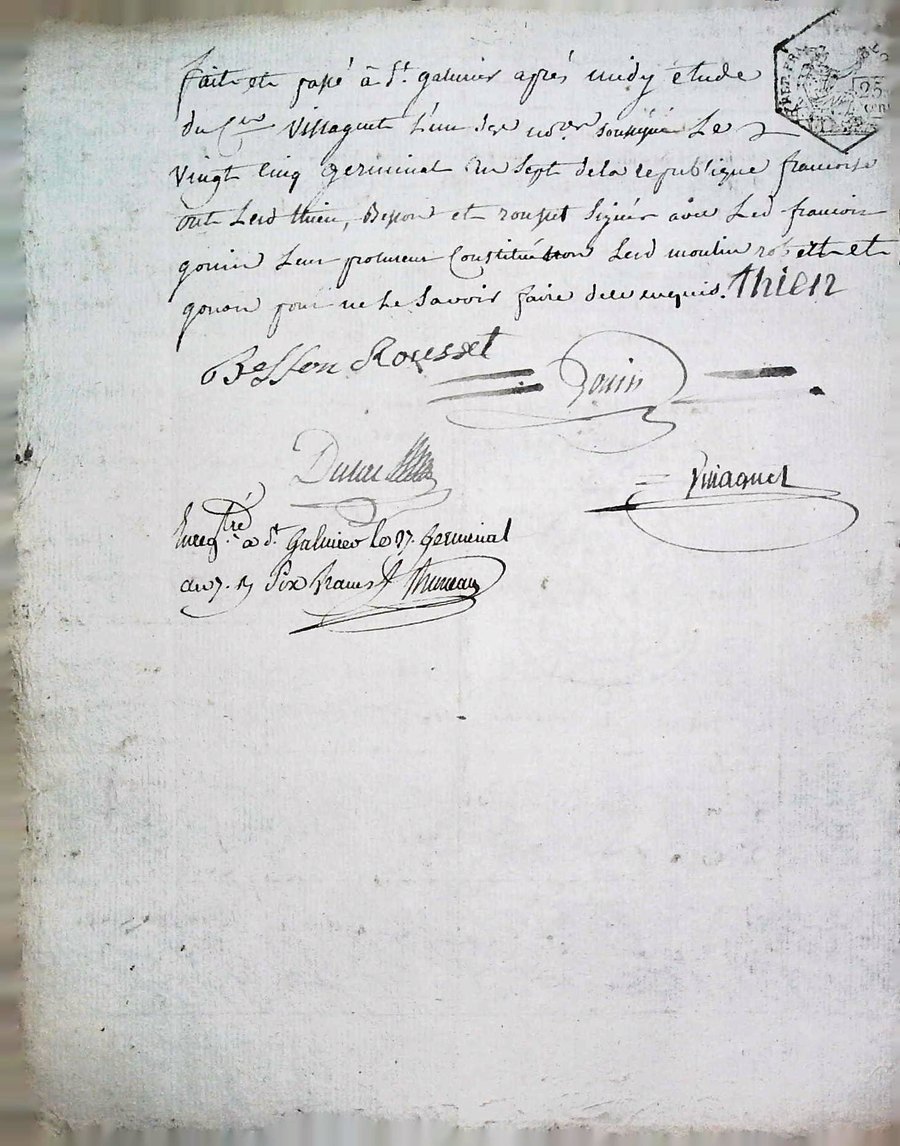 fait et passé à St galmier après midy etude
du Cen Villaquet L'un des nores soussigné Le
vingt cinq germinal an sept de la republique francoise
ont Lesd thien, Besson et rousset signés avec Led francois
gonin Leur procureur Constitué non Lesd moulin robert et
gonon pour ne Le savoir faire de ce enquis. Thien
Besson Rousset
Gonin
Villaquet
Enregtré à St Galmier le 27 Germinal
an 7. R Six francs
REP. FRA
25
cen